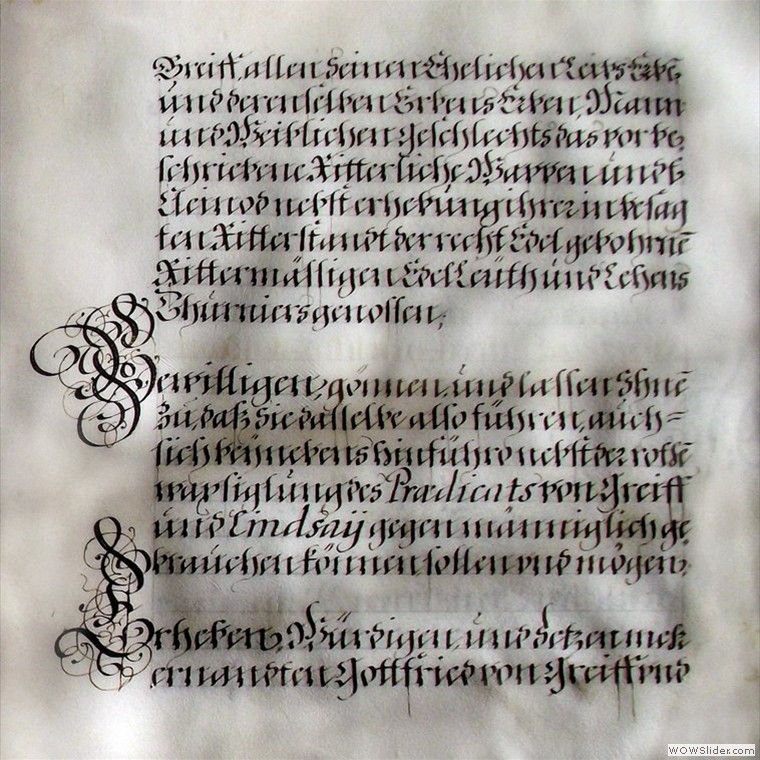 Greiff, allen Seinen Ehelichen Leibs Erbē
und derenselben Erbens Erben, Mann
und Weiblichen Geschlechts das vorbe,
schriebene Ritterliche Wappen und
Cleinod nebst erhebung ihrer in besag
ten Ritterstandt der recht Edelgebohrnē
Rittermässigen Edel Leüth und Lehens
Thurniersgenossen;
Bewilligen, gönnen, und lassen Ihnē
zu, daß Sie dasselbe also führen, auch=
sich beÿnebens hinführo nebst der rothē
waxsiglung des Prædicats von Greiff
und Lindsaÿ gegen männiglich ge,
brauchen können sollen und mögen,
Erheben, Würdigen, und Setzen mek
ernandten Gottfried von Greiff und
WOWSlider.com